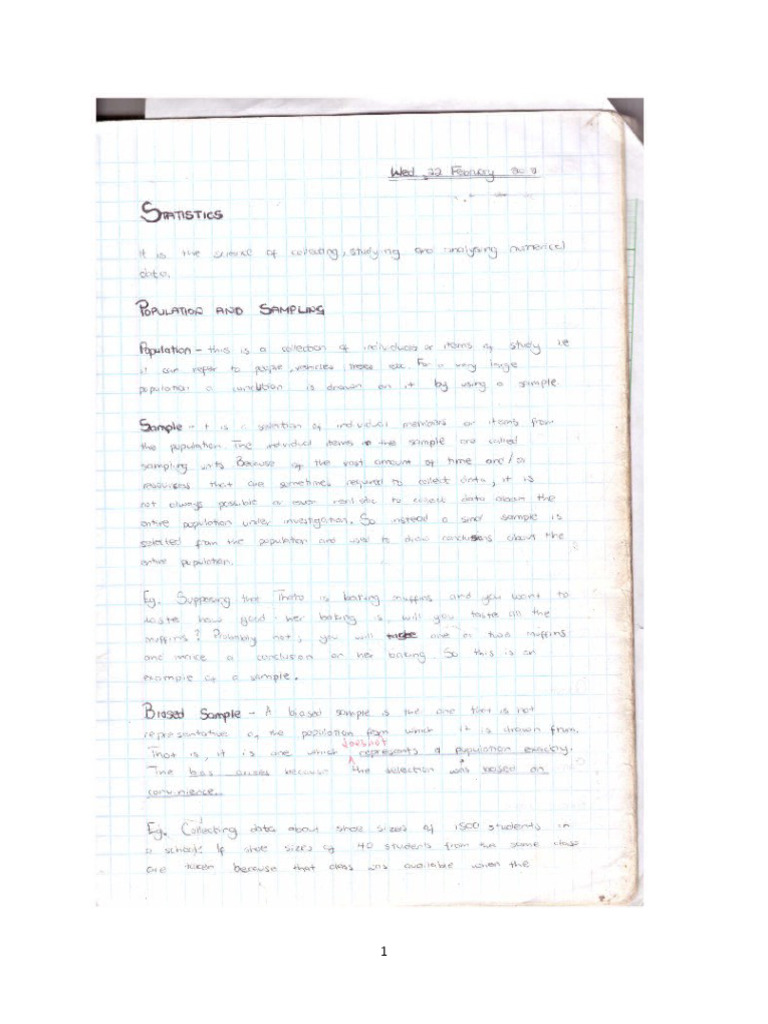 Wed, 22 February
STATISTICS
It is the science of collecting, studying and analysing numerical
data.
POPULATION AND SAMPLING
Population - this is a collection of individuals or items of study i.e
it can refer to people, vehicles, trees etc. For a very large
population a conclusion is drawn on it by using a sample
Sample - it is a selection of individual members or items from
the population. The individual items in the sample are called
sampling units Because of the vast amount of time and/or
resources that are sometimes required to collect data, it is
not always possible or even realistic to collect data about the
entire population under investigation. So instead a small sample is
selected from the population and used to draw conclusions about the
entire population.
Eg. Supposing that Thato is baking muffins and you want to
taste how good her baking is, will you taste all the
muffins? Probably not, you will taste one or two muffins
and make a conclusion on her baking. So this is an
example of a sample.
Biased Sample - A biased sample is the one that is not
representative of the population from which it is drawn from.
That is, it is one which does not represents a population exactly.
The bias arises because the selection was based on
convinience.
Eg. Collecting data about shoe sizes of 1500 students in
a school. If shoe sizes of 40 students from the same class
are taken because that class was available when the
1